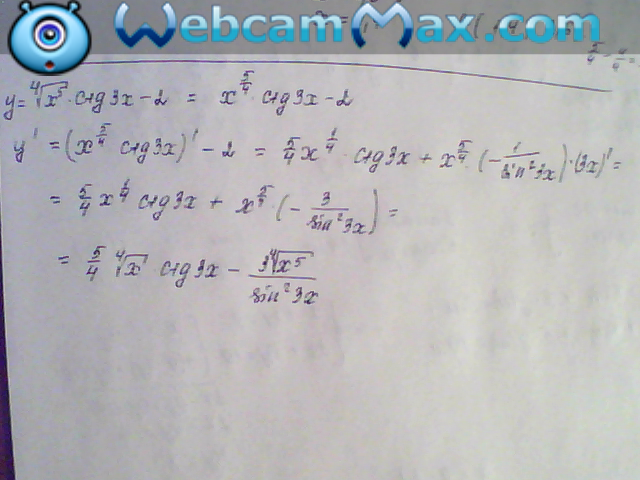 WebcamMax.com
www.webcammax.com
y = ⁴√x⁵ · ctg3x - 2 = x^(5/4) ctg3x - 2
y' = (x^(5/4) ctg3x)' - 2 = 5/4 x^(1/4) · ctg3x + x^(5/4) · (-1/sin²3x) · (3x)' =
= 5/4 x^(1/4) ctg3x + x^(5/4) · (-3/sin²3x) =
= 5/4 ⁴√x ctg3x - 3⁴√x⁵/sin²3x